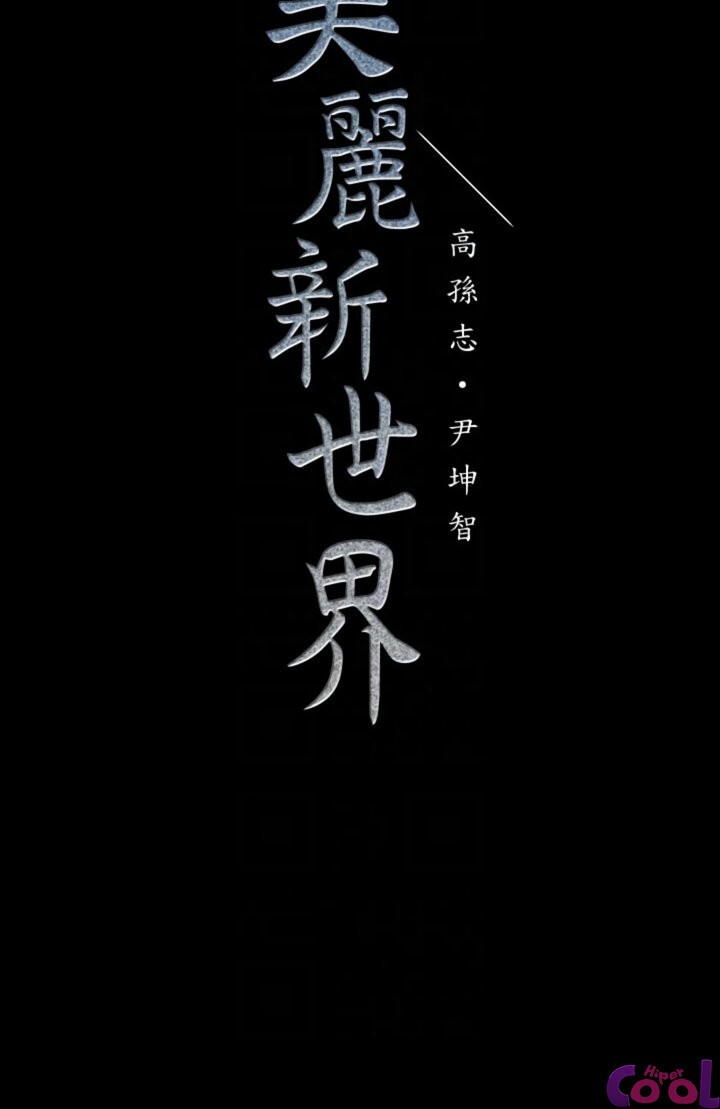 美麗新世界
高孫志·尹坤智
Hiper
COOL